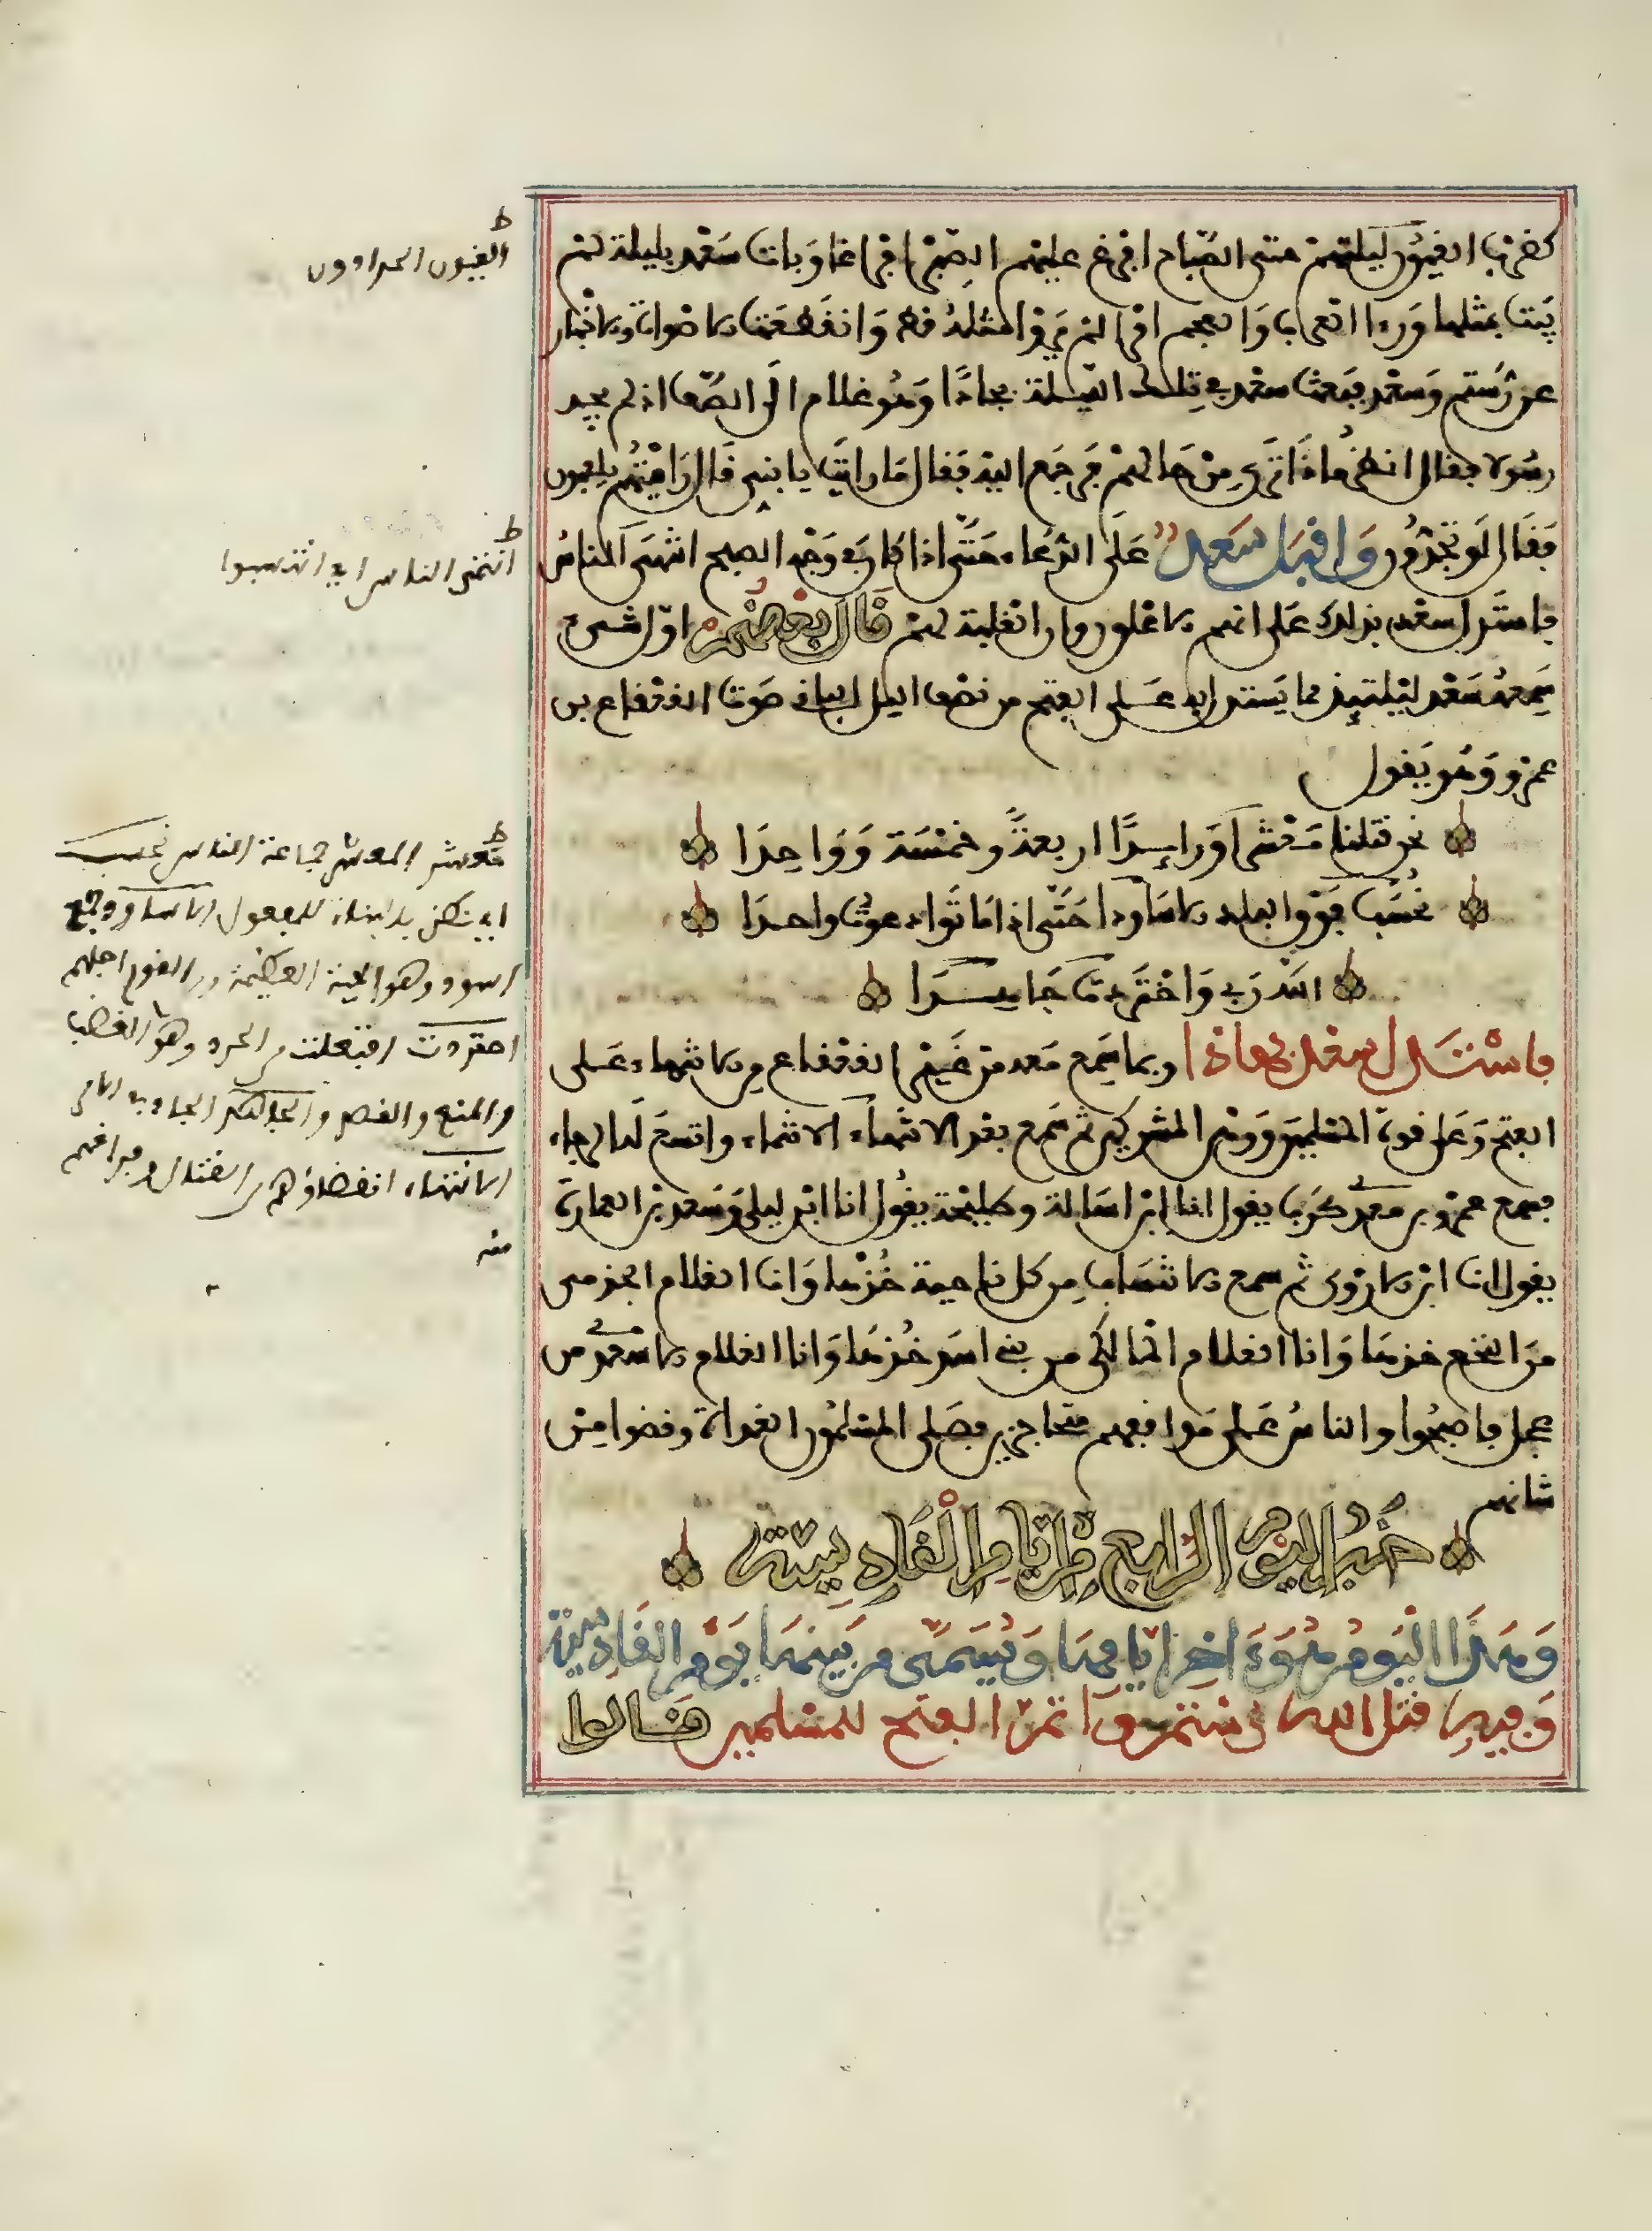 كضرب القيون ليلتهم حتى الصباح افرغ عليهم الصبر افراغا وبات سعد بليلة لم
يبت بمثلها ورءا العرب والعجم امرا لم يروا مثله قط وانقطعت الاصوات والاخبار
عن رستم وسعد فبعث سعد في تلك الليلة بجادا وهو غلام الى الصف اذ لم يجد
رسولا فقال انظر ماذا ترى من حالهم فرجع اليه فقال ما رايت يا بني قال رايتهم يلعبون
فقال او يجدون واقبل سعد على الدعاء حتى اذا كان في وجه الصبح انتمى الناس
فاستدل سعد بذلك على انهم الاعلون وان الغلبة لهم قال بعضهم اول شيء
سمعه سعد ليلتيذ مما يستدل به على الفتح من نصف اليل الباقي صوت القعقاع بن
عمرو وهو يقول
نحن قتلنا معشرا وزايدا اربعة وخمسة وواحدا
نحسب فوق البلد الاساودا حتى اذا ماتوا دعوت واحدا
الله ربي واحتردت جاهدا
فاستدل سعد بهاذا وبما سمع معه من غير القعقاع من الانتماء على
الفتح وعلى قوة المسلمين ووهن المشركين ثم سمع بعد الانتماء الانتماء واتسع له الرجاء
فسمع عمرو بن معدي كرب يقول انا ابن اسالة وطليحة يقول انا ابن ليلى وسعد بن العمارة
يقول انا ابن الاروى ثم سمع الانتساب من كل ناحية خذها وانا الغلام الجرمي
من النخع خذها وانا الغلام المالكي من بني اسد خذها وانا الغلام الاسعدي من
عجل فاصبحوا والناس على مواقفهم متحاجزين فصلى المسلمون الغداة وقضوا من
شانهم
خبر اليوم الرابع من ايام القادسية
وهذا اليوم هو ءاخر ايامها ويسمى من بينها يوم القادسية
وفيه قتل الله رستم وتم الفتح للمسلمين قالوا
ط
القيون الحدادون
ط
انتمى الناس اي انتسبوا
ط
معشر المعشر جماعة الناس نحسب
اي نظن بالبناء للمفعول الاساود جمع
اسود وهو الحية العظيمة ومن القوم اجلهم
احتردت افتعلت من الحرد وهو الغضب
والمنع والقصد
الانتهاء انقضاؤهم من القتال وفراغهم
منه